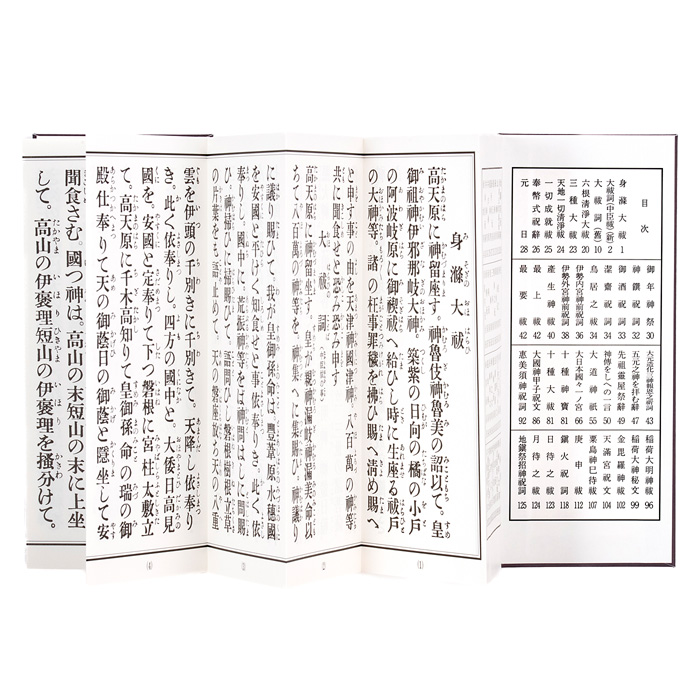 目次
身滌大祓 1
大祓詞(中臣祓)(新) 2
大祓詞(舊) 10
六根清淨大祓 20
三種大祓 23
天地一切清淨祓 24
一切成就祓 25
奉幣式祝辭 26
元日 28
御年神祭 30
神饌祝詞 32
御酒祝詞 33
潔齋祝詞 34
鳥居之祓 34
伊勢内宮神前祝詞 36
伊勢外宮神前祝詞 38
産生神祓 40
最上祓 42
最要祓 42
五元之神を拝む詞 47
先祖靈屋祭辭 49
神傳をしへの一言 50
大道神祇 55
大日本國々一ノ宮 66
十種神寶 81
十種大祓
大國神甲子祝文 86
惠美須神祝詞 92
稲荷大明神祓 96
稲荷大神秘文 99
金毘羅神祓 102
天滿宮祝文 104
粟島神巳待祓 107
庚申祓 112
鎭火祝詞 118
日待之祓 123
月待之祓 124
地鎭祭招神祝詞 125
身滌大祓
高天原に神留座す。神魯伎神魯美の詔以て。皇
御祖神伊邪那岐大神。築紫の日向の橘の小戸
の阿波岐原に御禊祓へ給ひし時に生座る祓戸
の大神等。諸の枉事罪穢を拂ひ賜へ清め賜へ
と申す事の由を天津神國津神。八百萬の神等
共に聞食せと恐み恐み申す
大祓詞
高天原に神留坐す。皇が親神漏岐神漏美の命以
て八百萬の神等を。神集へに集賜ひ。神議り
に議り賜ひて。我が皇御孫命は。豐葦原水穗國
を安國と平けく知食せと事依奉りき。此く依
奉りし國中に。荒振神等をは神問はしに問賜
ひ。神掃ひに掃賜ひて。語問ひし磐根樹根立草
の片葉をも語止めて。天の磐座放ち天の八重
雲を伊頭の千別きに千別きて。天降し依奉り
き。此く依奉りし。四方の國中と。大倭日高見
國を。安國と定奉りて下つ磐根に宮柱太敷立
て。高天原に千木高知りて皇御孫命の瑞の御
殿仕奉りて天の御蔭日の御蔭と隱坐して安
(1)
(2)
(3)
(4)
聞食さむ。國つ神は。高山の末短山の末に上坐
して。高山の伊褒理短山の伊褒理を搔分けて。